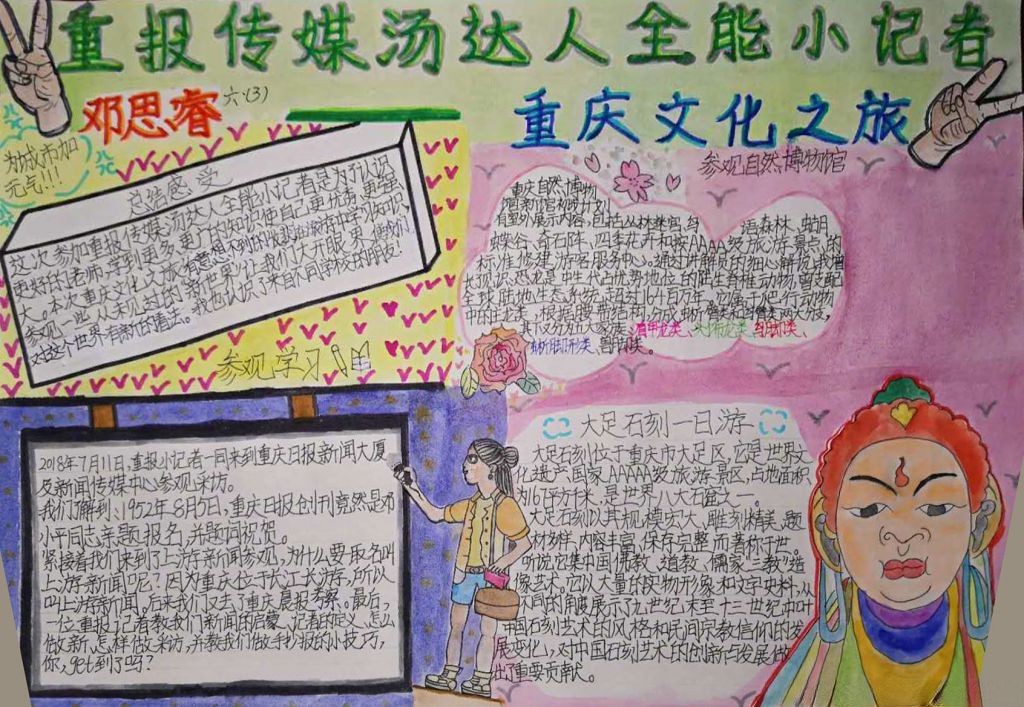 重报传媒汤达人全能小记者
邓思睿
六·(3)
重庆文化之旅
为城市加
元气!!!
总结感受
这次参加重报传媒汤达人全能小记者是为了认识
更好的老师,学到更多更广的知识使自己更优秀更强
大。本次重庆文化之旅有意想不到的收获
参观一些从未见过的新世界,让我们大开眼界
对这个世界有新的看法。我也认识了来自不同学校的朋友!
参观学习
参观自然博物馆
重庆自然博物
馆新馆
有室外展示内容,包括丛林探宫、
恐龙森林、蝴
蝶谷、奇石阵、四季花卉和按AAAA级旅游景点的
标准修建游客服务中心。通过讲解员的细心解说,我增
长见识:恐龙是中生代占优势地位的陆生脊椎动物,曾支配
全球陆地生态系统超过1.6亿百万年。它属于爬行动物
中的主龙类,根据腰带结构分成蜥臀类和鸟臀类两大族,
其下又分为六大家族:有甲龙类、
2018年7月11日,重报小记者一同来到重庆日报新闻大厦
及新闻传媒中心参观采访。
我们了解到:1952年8月5日,重庆日报创刊竟然是邓
小平同志亲题报名,并题词祝贺。
紧接着我们来到了上游新闻参观,为什么要取名叫
上游新闻呢?因为重庆位于长江上游,所以
叫上游新闻。后来我们又去了重庆晨报考察。最后,
一位重报记者教我们新闻的启蒙、记者的定义、怎么
做新闻,怎样做采访,并教我们做手抄报的小技巧,
你,get到了吗?
大足石刻一日游
大足石刻位于重庆市大足区,它是世界文
化遗产国家AAAAA级旅游景区,占地面积
为16平方千米,是世界八大石窟之一。
大足石刻以其规模宏大,雕刻精美,题
材多样,内容丰富,保存完整而著称于世。
听说它集中国佛教、道教、儒家“三教”造
像艺术。它以大量的实物形象和文字史料,从
不同的角度展示了九世纪末至十三世纪中叶
中国石刻艺术的风格和民间宗教信仰的发
展变化,对中国石刻艺术的创新与发展做
出了重要贡献。